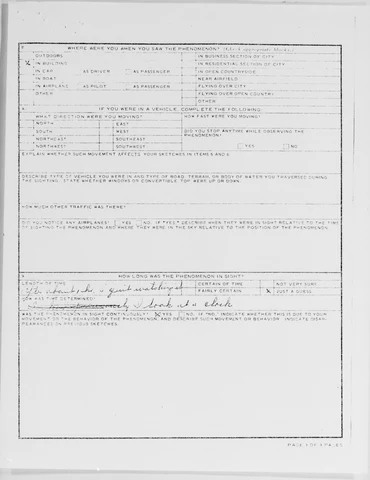 7. WHERE WERE YOU WHEN YOU SAW THE PHENOMENON? (Check appropriate blocks.)
OUTDOORS
IN BUSINESS SECTION OF CITY
X IN BUILDING
IN RESIDENTIAL SECTION OF CITY
IN CAR AS DRIVER AS PASSENGER
IN OPEN COUNTRYSIDE
IN BOAT
NEAR AIRFIELD
IN AIRPLANE AS PILOT AS PASSENGER
FLYING OVER CITY
OTHER
FLYING OVER OPEN COUNTRY
OTHER
IF YOU WERE IN A VEHICLE, COMPLETE THE FOLLOWING
WHAT DIRECTION WERE YOU MOVING?
HOW FAST WERE YOU MOVING?
NORTH EAST
SOUTH WEST
DID YOU STOP ANYTIME WHILE OBSERVING THE PHENOMENON?
NORTHEAST SOUTHEAST
NORTHWEST SOUTHWEST
YES NO
EXPLAIN WHETHER SUCH MOVEMENT AFFECTS YOUR SKETCHES IN ITEMS 5 AND 6
DESCRIBE TYPE OF VEHICLE YOU WERE IN AND TYPE OF ROAD, TERRAIN, OR BODY OF WATER YOU TRAVERSED DURING
THE SIGHTING. STATE WHETHER WINDOWS OR CONVERTIBLE TOP WERE UP OR DOWN.
HOW MUCH OTHER TRAFFIC WAS THERE?
DID YOU NOTICE ANY AIRPLANES? YES NO. IF "YES," DESCRIBE WHEN THEY WERE IN SIGHT RELATIVE TO THE TIME
OF SIGHTING THE PHENOMENON AND WHERE THEY WERE IN THE SKY RELATIVE TO THE POSITION OF THE PHENOMENON.
HOW LONG WAS THE PHENOMENON IN SIGHT?
LENGTH OF TIME
CERTAIN OF TIME NOT VERY SURE
FAIRLY CERTAIN X JUST A GUESS
HOW WAS TIME DETERMINED?
I look at a clock
WAS THE PHENOMENON IN SIGHT CONTINUOUSLY? X YES NO. IF "NO," INDICATE WHETHER THIS IS DUE TO YOUR
MOVEMENT OR THE BEHAVIOR OF THE PHENOMENON, AND DESCRIBE SUCH MOVEMENT OR BEHAVIOR. INDICATE DISAP-
PEARANCES ON PREVIOUS SKETCHES.